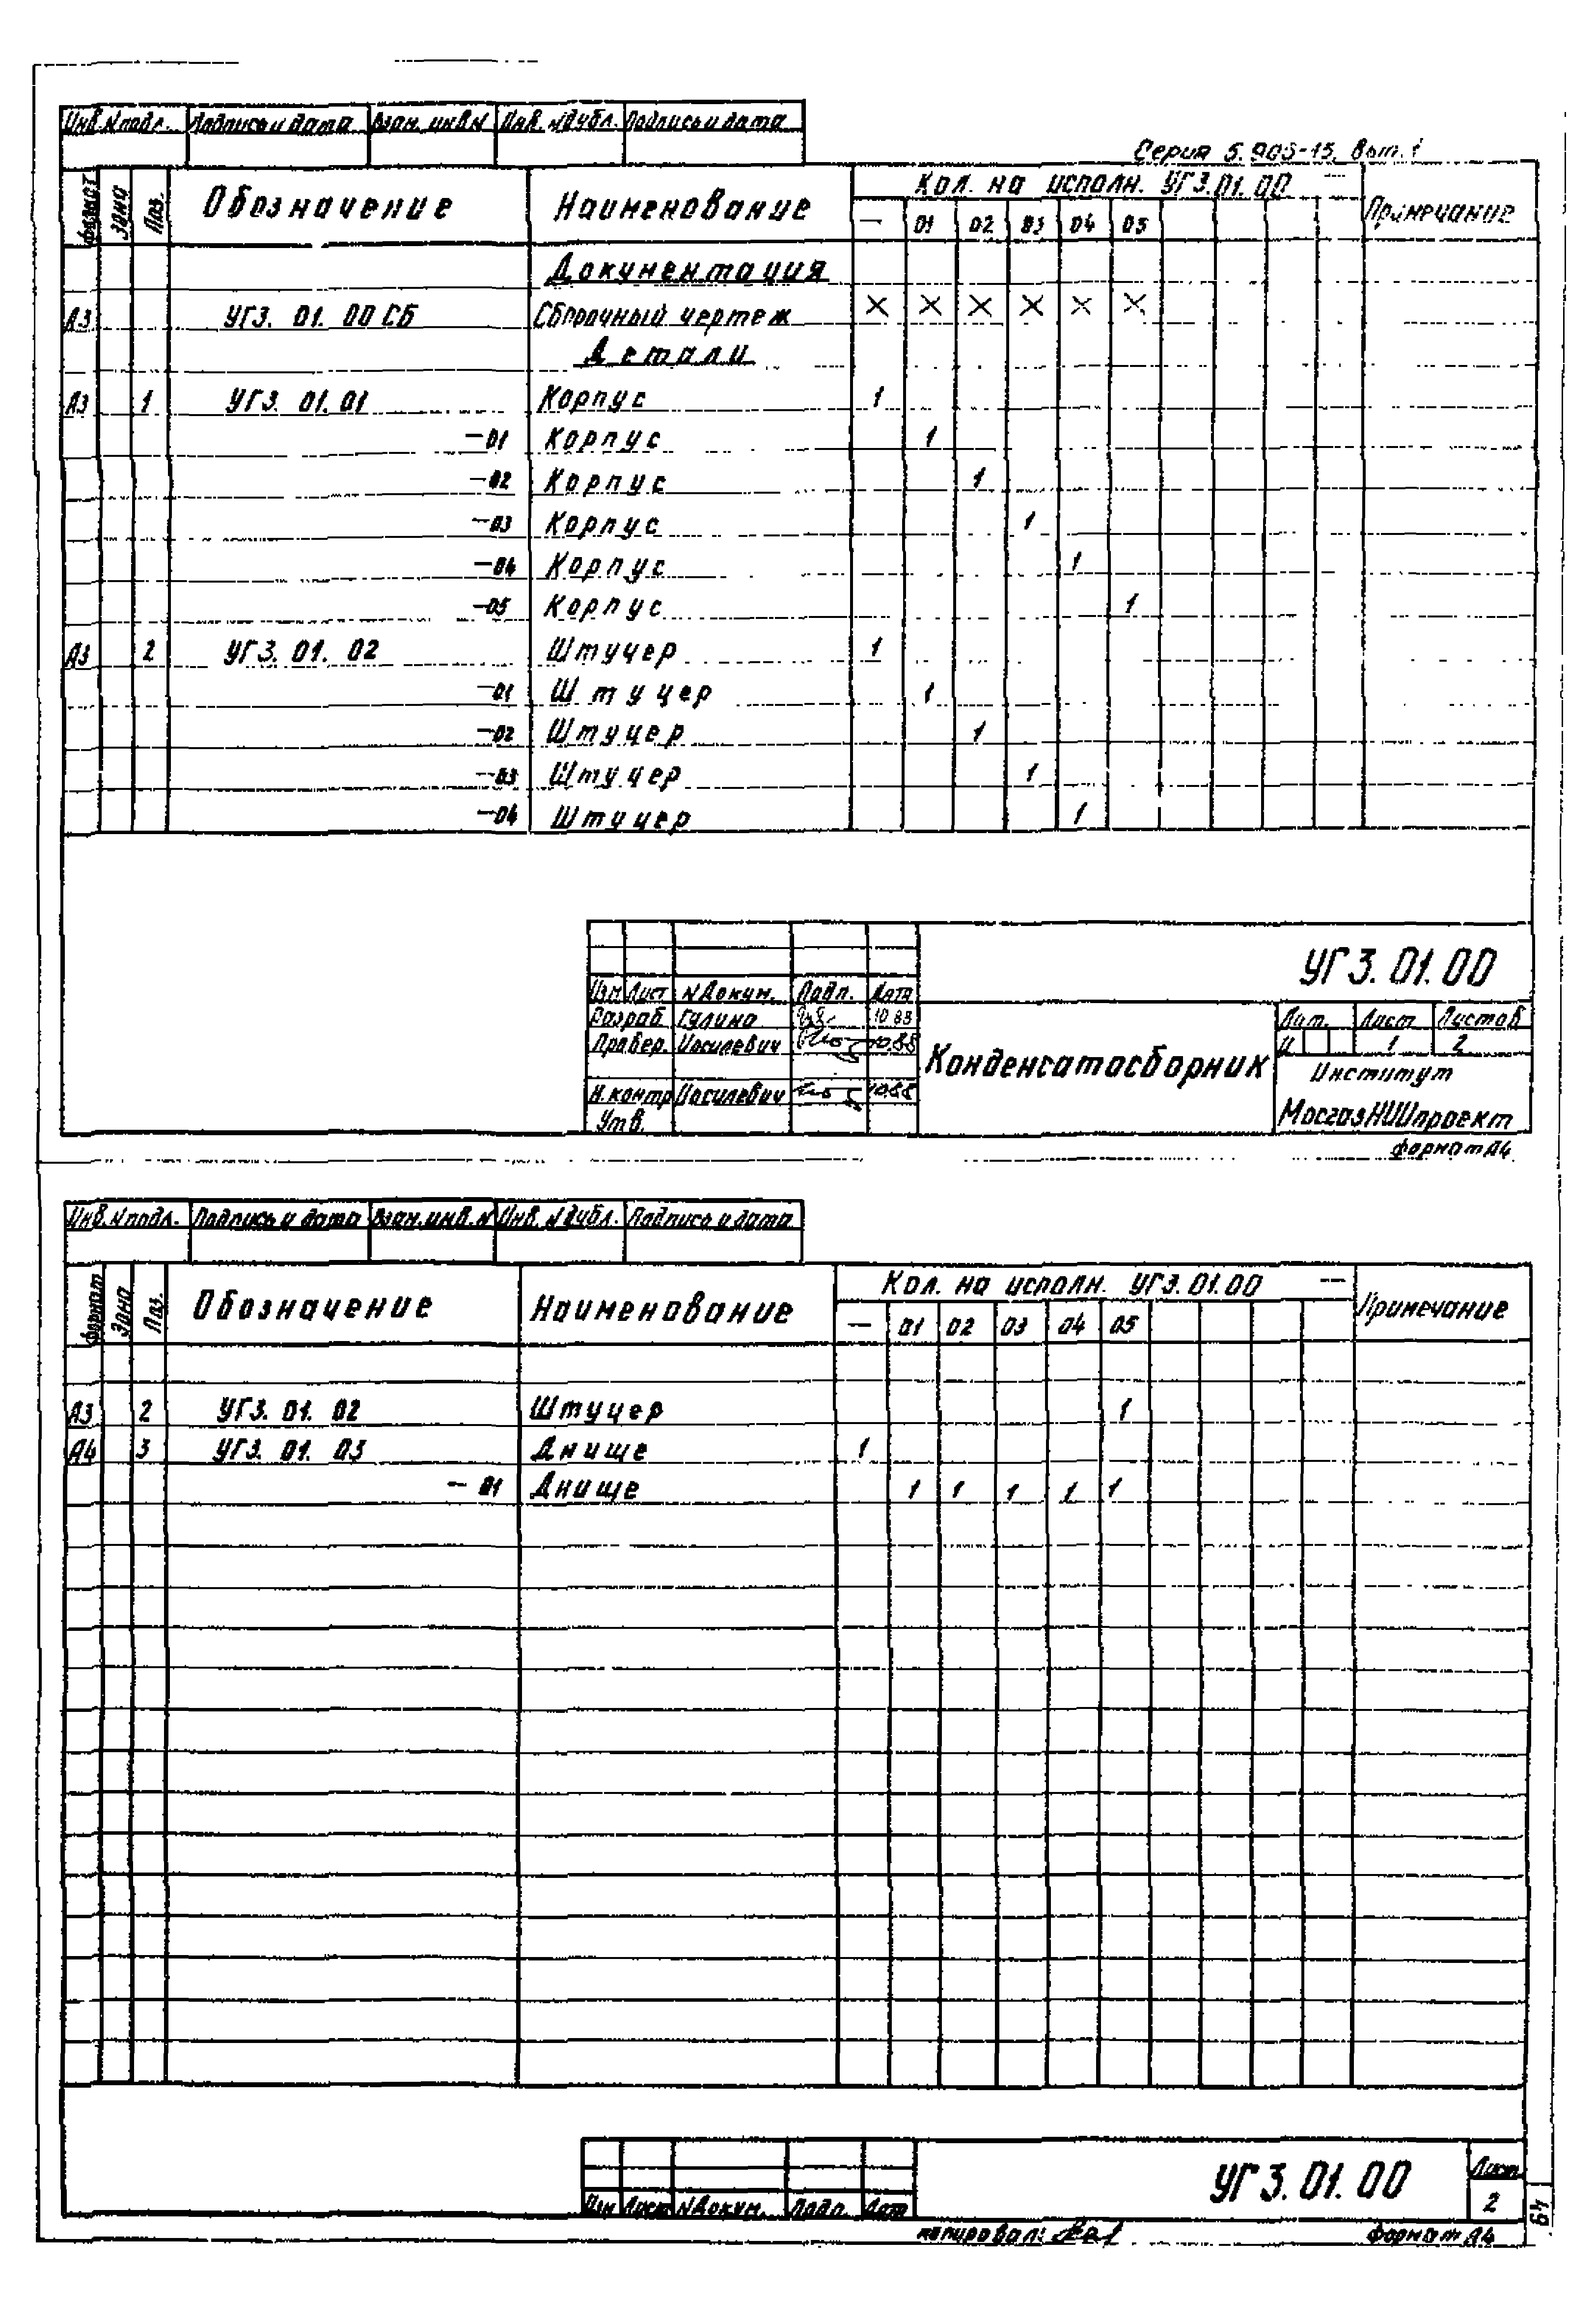 Инв. N подл. Подпись и дата Взам. инв N Инв. N дубл. Подпись и дата
Серия 5.905-15, вып. 1
Формат Зона Поз. Обозначение Наименование Кол. на исполн. УГ3.01.00 — Примечание
— 01 02 03 04 05
Документация
А3 УГ3. 01. 00 СБ Сборочный чертеж X X X X X X
Детали
А3 1 УГ3. 01. 01 Корпус 1
—01 Корпус 1
—02 Корпус 1
—03 Корпус 1
—04 Корпус 1
—05 Корпус 1
А3 2 УГ3. 01. 02 Штуцер 1
—01 Штуцер 1
—02 Штуцер 1
—03 Штуцер 1
—04 Штуцер 1
УГ3.01.00
Изм Лист N Докум. Подп. Дата
Разраб Гулина 10 88
Провер. Иосилевич 10.88
Н.контр Иосилевич 10.88
Утв.
Конденсатосборник
Лит. Лист Листов
И 1 2
Институт
МосгазНИИпроект
формат А4
Инв. N подл. Подпись и дата Взам. инв. N Инв. N дубл. Подпись и дата
Формат Зона Поз. Обозначение Наименование Кол. на исполн. УГ3.01.00 — Примечание
— 01 02 03 04 05
А3 2 УГ3. 01. 02 Штуцер 1
А4 3 УГ3. 01. 03 Днище 1
— 01 Днище 1 1 1 1 1
УГ3.01.00
Лист
2
Изм Лист N Докум. Подп. Дат
копировал:
формат А4
64